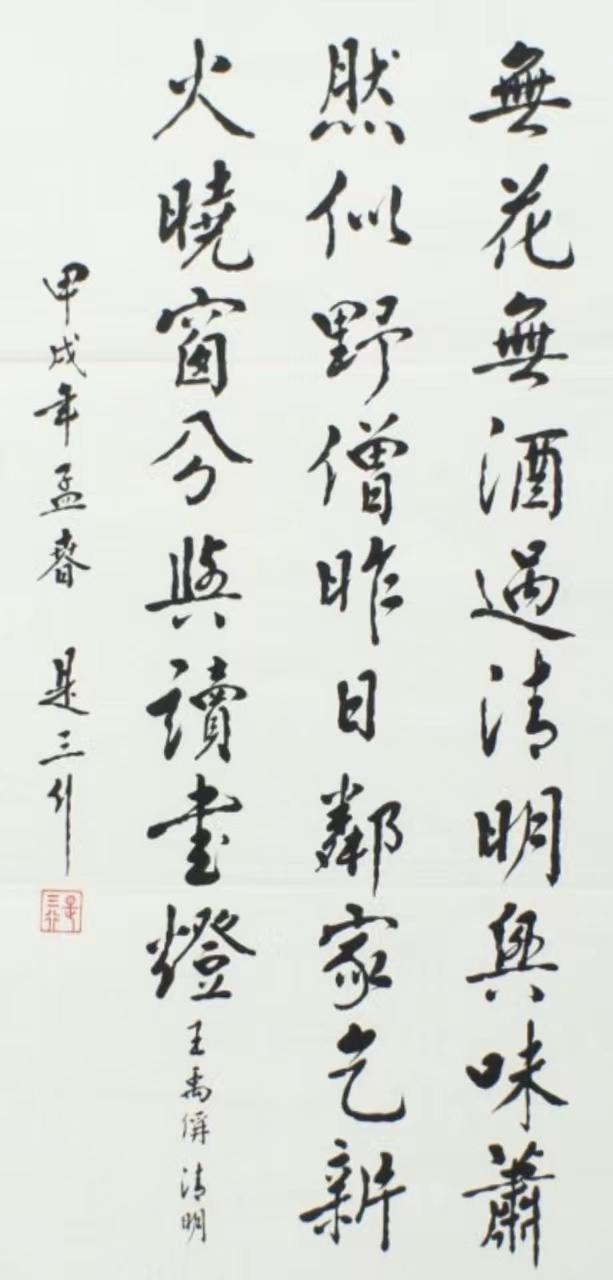 無花無酒過清明興味蕭
然似野僧昨日鄰家乞新
火曉窗分與讀書燈
王禹偁清明
甲戌年孟春 是三